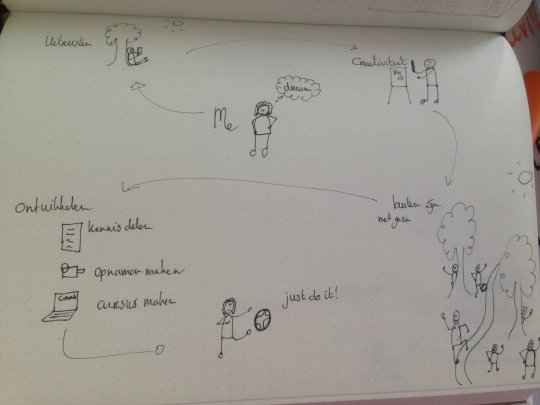 Uitrusten
Creativiteit
Do
it
dream
Me
buiten zijn
met gezin
Ontwikkelen
kennis delen
opnamen maken
cursus maken
just do it!